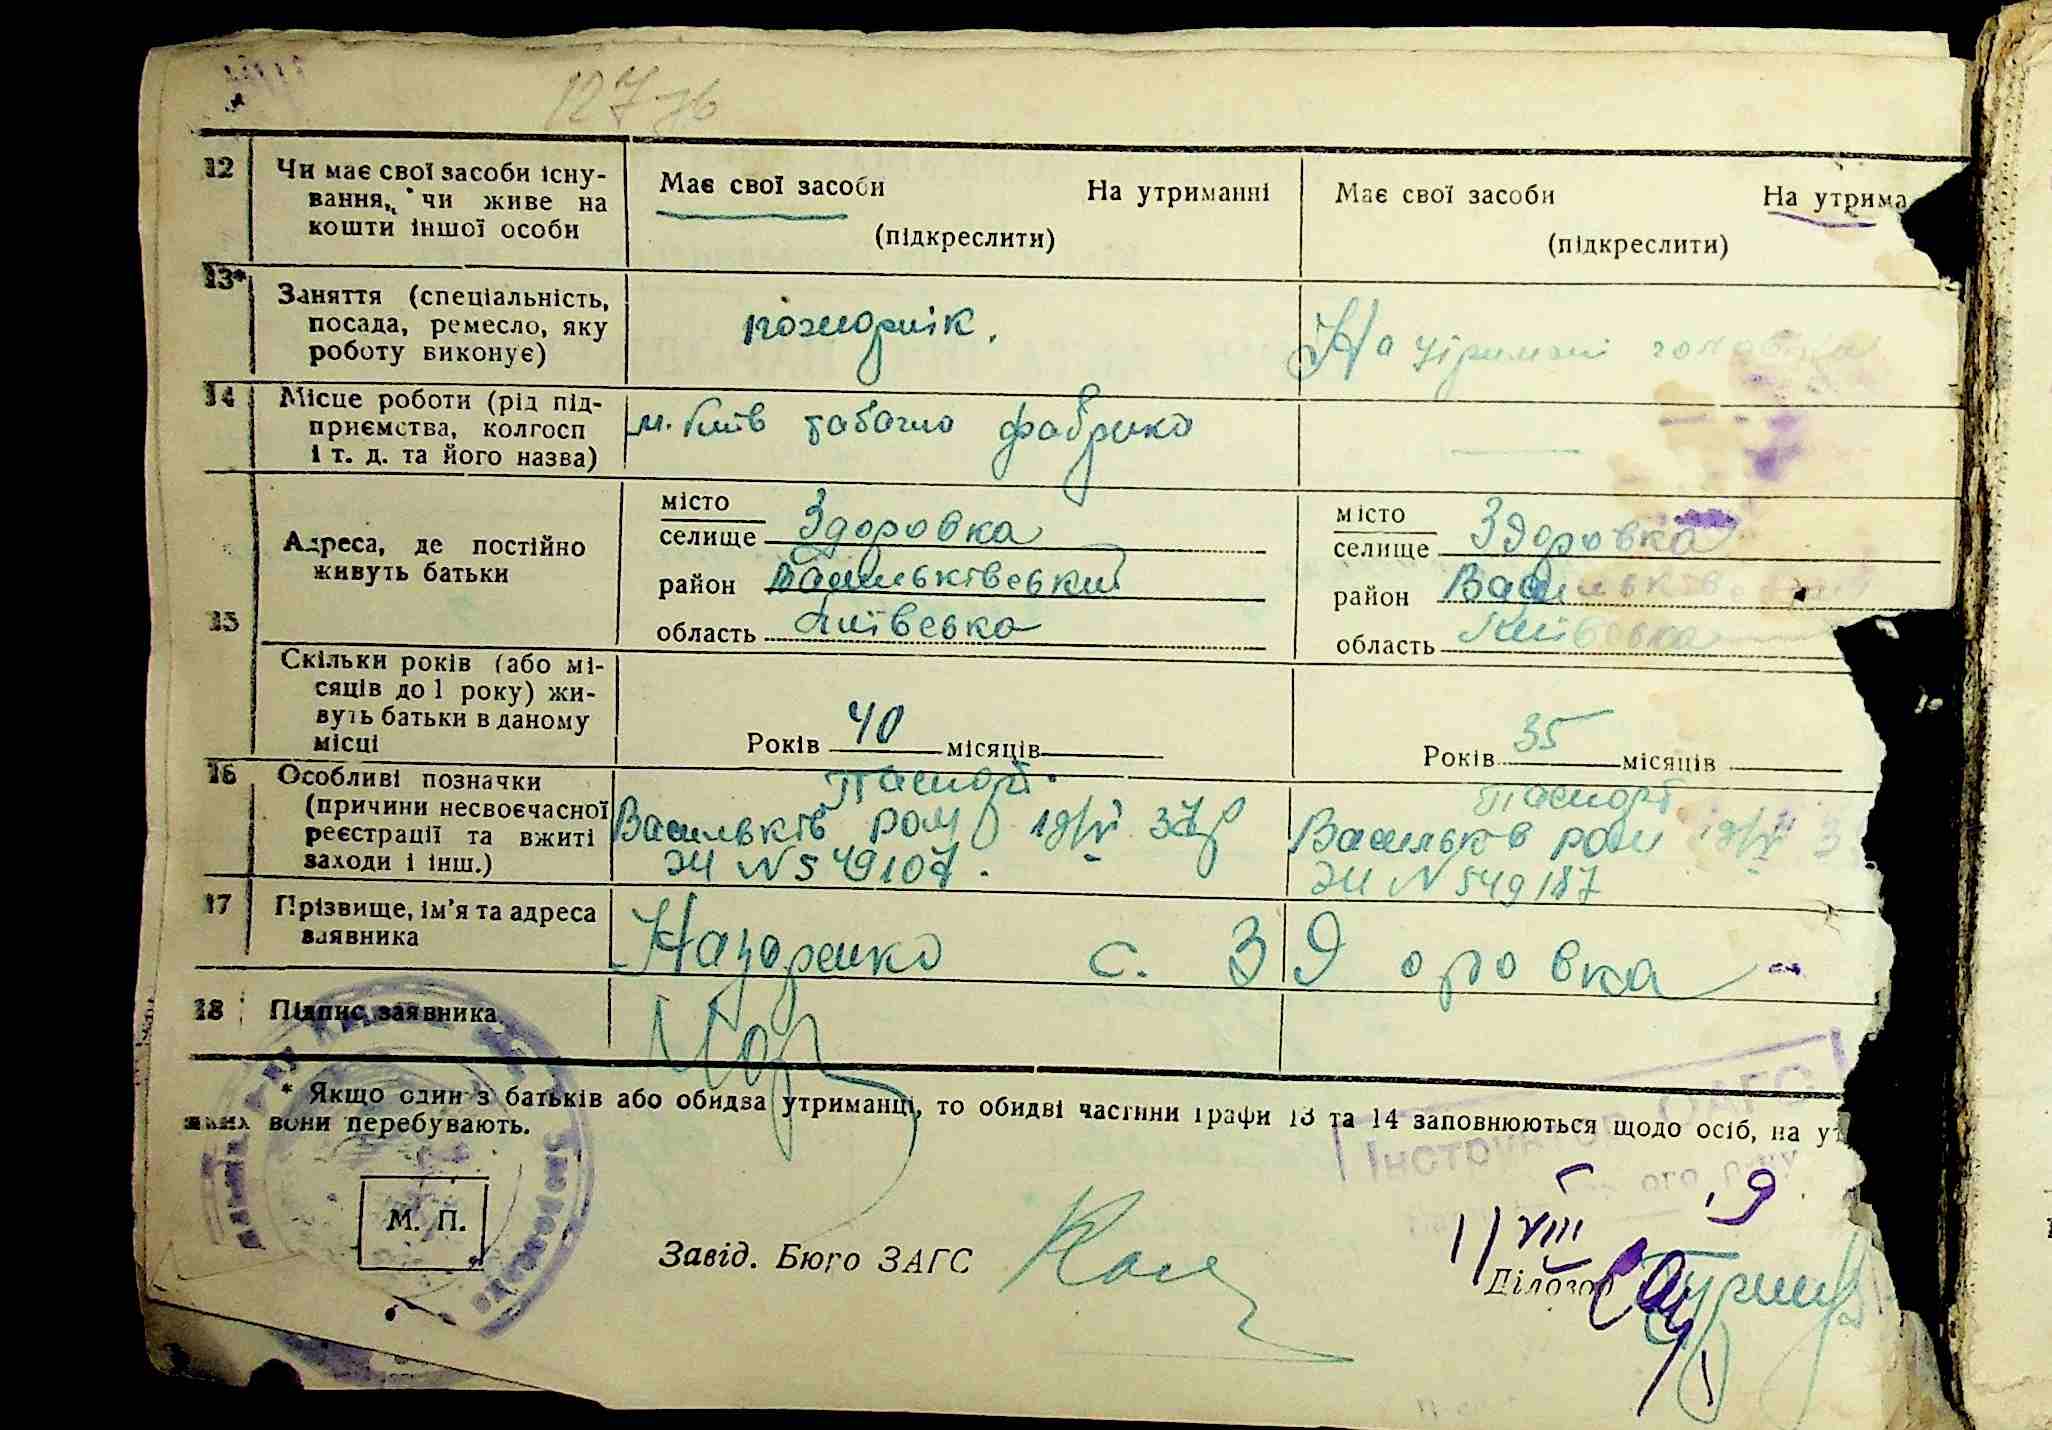 127 зв
12 Чи має свої засоби існу-
вання, чи живе на
кошти іншої особи
Має свої засоби На утриманні
(підкреслити)
Має свої засоби На утрима
(підкреслити)
13* Заняття (спеціальність,
посада, ремесло, яку
роботу виконує)
пожарнік.
На утримані чоловіка
14 Місце роботи (рід під-
приємства, колгосп
і т. д. та його назва)
м. Київ табачна фабрика
15 Адреса, де постійно
живуть батьки
місто
селище Здоровка
район Васильківський
область Київська
місто
селище Здоровка
район Васильків
область Київська
Скільки років (або мі-
сяців до 1 року) жи-
вуть батьки в даному
місці
Років 40 місяців
Років 35 місяців
16 Особливі позначки
(причини несвоєчасної
реєстрації та вжиті
заходи і інш.)
Паспорт
Васильків 19/V 37р
ЭИ N 549107.
Паспорт
Васильків 19/V 3
ЭИ N 549187
17 Прізвище, ім'я та адреса
заявника
Назаренко с. Здоровка
18 Підпис заявника
* Якщо один з батьків або обидва утриманці, то обидві частини графи 13 та 14 заповнюються щодо осіб, на ут
яких вони перебувають.
Інструктор ОАГС
М. П.
Завід. Бюро ЗАГС
11/VIII
Діловод